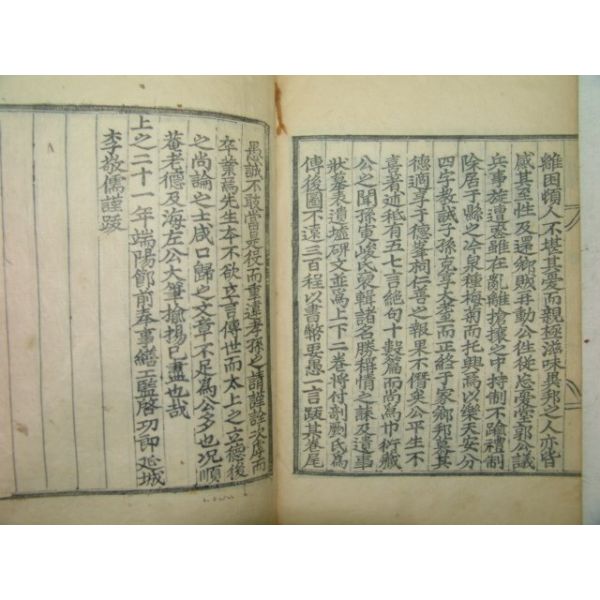 雖困頓人不堪其憂而親極滋味異邦之人亦皆
感其至性及還鄉賊再動公往從忘憂堂郭公議
兵事旋遭 雖在亂離搶攘之中持制不踰禮制
除居于縣之冷泉種梅菊而托興焉以樂天安分
四字教誡子孫克享大耋而正終于家鄉邦慕其
德適享于德峯祠仁善之報果不僭矣公平生不
喜著述秪有五七言絶句十數篇而尚爲巾衍藏
公之聞孫寅峻氏裒輯諸名勝稱情之誄及遺事
狀墓表遺墟碑文並爲上下二卷將付剞劂氏爲
傳後圖不遠三百程以書幣要愚一言題其卷尾
愚誠不敢當是役而重違孝孫之請謹詮次序而
卒業焉先生本不欲立言傳世而太上之立德後
之尚論之士咸口歸之文章不足爲公多也况順
菴老德及海左公大筆揄揚已盡也哉
上之二十一年端陽節前奉事繕工監啓功郎延城
李敬儒謹跋